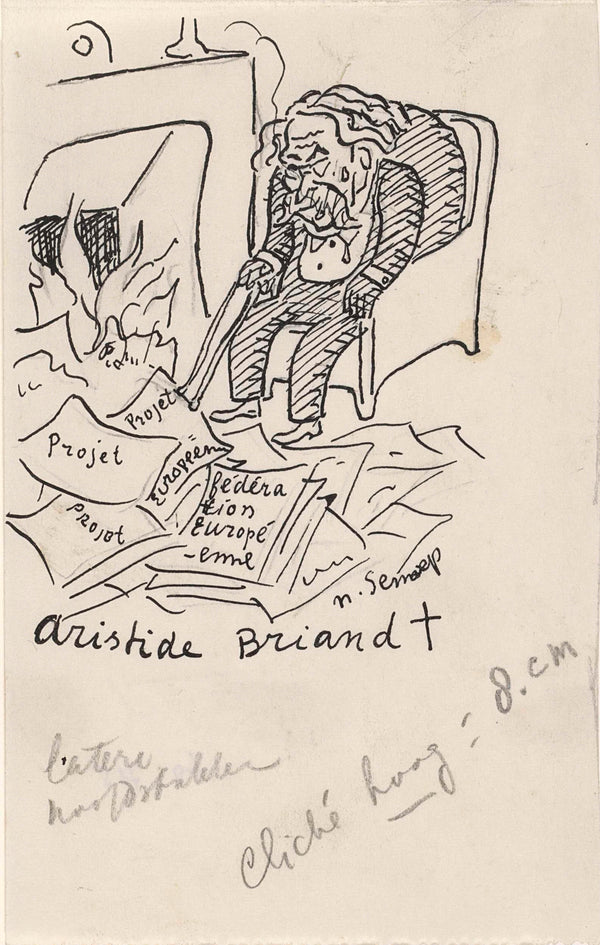 Projet
Projet
Européen
Projet
fédéra
tion
Europé
-enne
n. Semoep
Aristide Briand †
latere
hoofdstukken
Cliché hoog: 8. cm